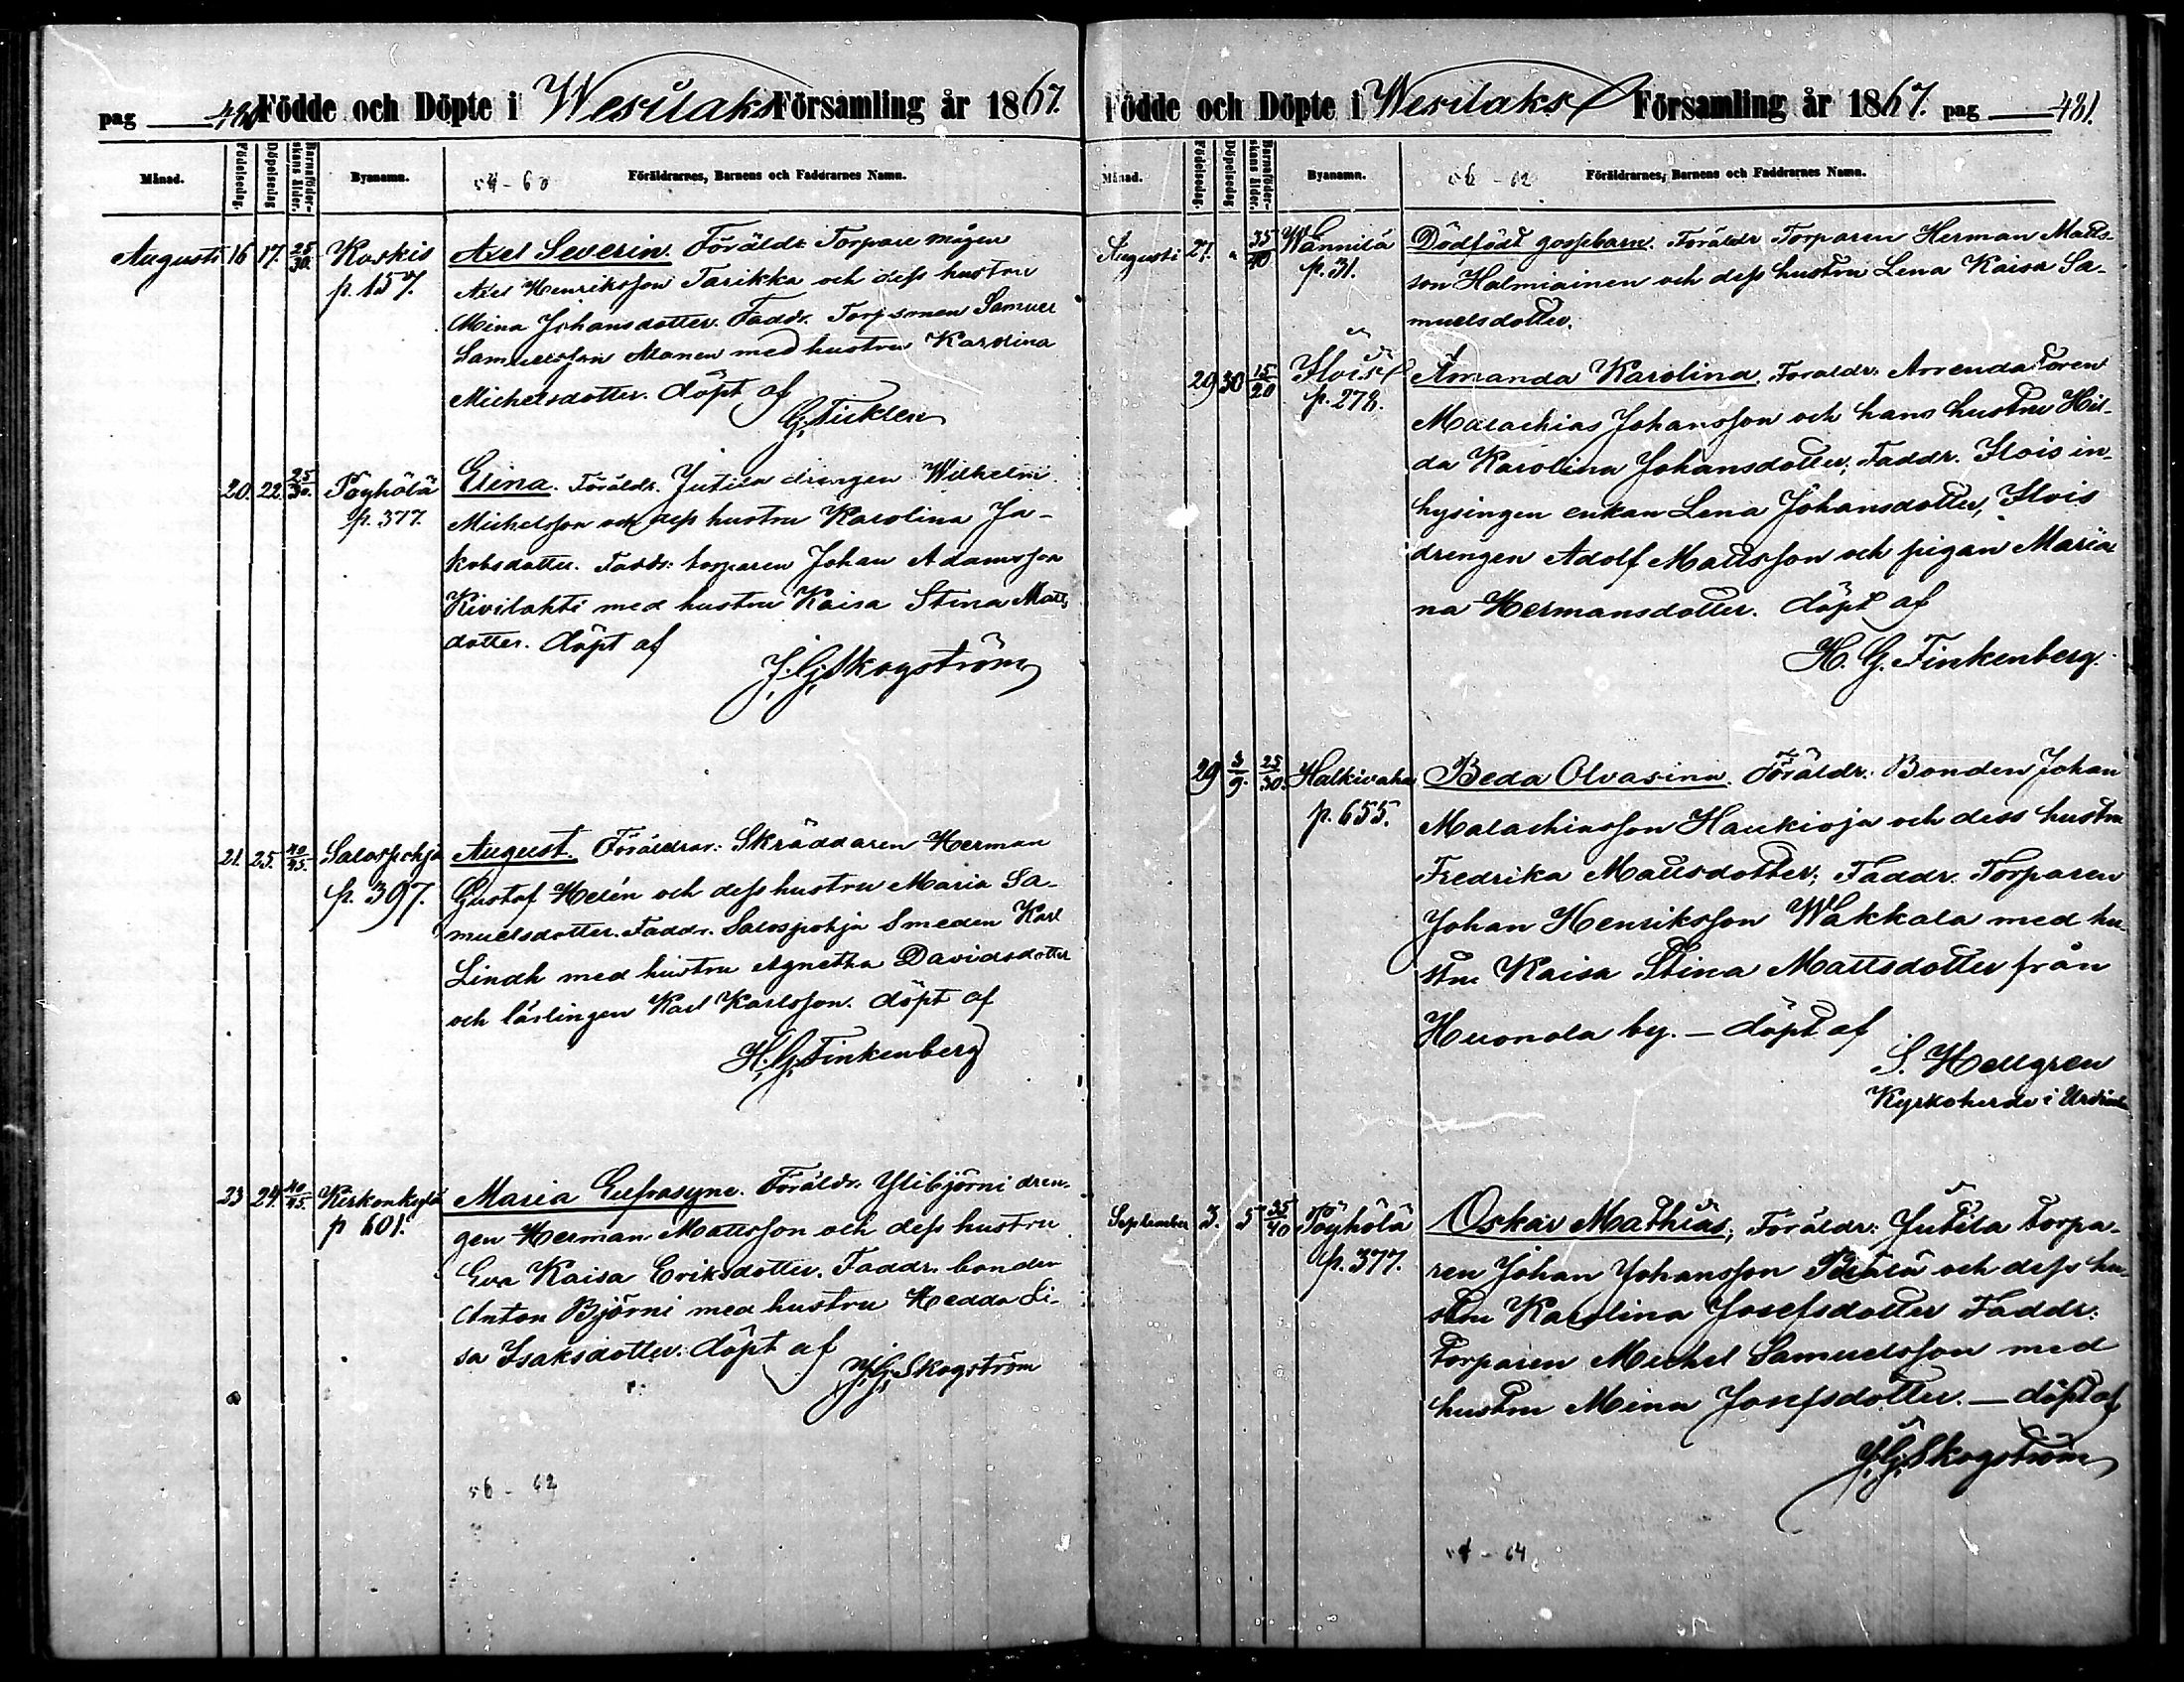 pag 480 Födde och Döpte i Wesilaks Församling år 1867.
Månad. Födelsedag. Döpelsedag Barnaföder-skans ålder. Byanamn. 54-60 Föräldrarnes, Barnens och Faddrarnes Namn.
Augusti 16 17. 25/30. Koskis Axel Severin. Föräldr. Torpare mågen
p. 157. Axel Henriksson Tarikka och dess hustru
Mina Johansdotter. Faddr. Torpsonen Samuel
Samuelsson Alanen med hustru Karolina
Michelsdotter. döpt af
G. Ticklén
20. 22. 25/30. Pöyhölä Elina. Föräldr. Jutila drengen Wilhelm
p. 377. Michelsson och dess hustru Karolina Ja-
kobsdotter. Faddr: torparen Johan Adamsson
Kivilahti med hustru Kaisa Stina Matts
dotter. döpt af
J. G. Skogström
21. 25. 40/45. Salospohja August. Föräldrar: Skräddaren Herman
p. 397. Gustaf Helén och dess hustru Maria Sa-
muelsdotter. Faddr. Salospohja Smeden Karl
Lindh med hustru Agnetha Davidsdotter
och lärlingen Karl Karlsson. döpt af
H. G. Finkenberg
23 24. 40/45. Kirkonkylä Maria Eufrosyne. Föräldr. Ylibjörni dren-
p 601. gen Herman Mattsson och dess hustru
Eva Kaisa Eriksdotter. Faddr. bonden
Anton Björni med hustru Hedda Li-
sa Isaksdotter. döpt af
J. G. Skogström
56-62
Födde och Döpte i Wesilaks Församling år 1867. pag 481.
Månad. Födelsedag. Döpelsedag Barnaföder-skans ålder. Byanamn. 56-62 Föräldrarnes, Barnens och Faddrarnes Namn.
Augusti 27. " 35/40 Wännilä Dödfödt gossebarn. Föräldr Torparen Herman Matts-
p. 31. son Halmiainen och dess hustru Lena Kaisa Sa-
muelsdotter.
29 30 15/20 Hois Amanda Karolina. Föräldr. Arrendatoren
p. 278. Malachias Johansson och hans hustru Hil-
da Karolina Johansdotter; Faddr. Hois in-
hysingen enkan Lena Johansdotter, Hois
drengen Adolf Mattsson och pigan Maria
na Hermansdotter. döpt af
H. G. Finkenberg.
29 3/9. 25/30. Halkivaha Beda Olvasina. Föräldr. Bonden Johan
p. 655. Malachiasson Haukioja och dess hustru
Fredrika Mattsdotter; Faddr. Torparen
Johan Henriksson Wakkala med hu-
stru Kaisa Stina Mattsdotter från
Huonola by. — döpt af
S. Hellgren
Kyrkoherde i Urdiala
September 3. 5 35/40 Pöyhölä Oskar Mathias; Föräldr: Jutila torpa-
p. 377. ren Johan Johansson och dess hu-
stru Karolina Josefsdotter Faddr:
torparen Michel Samuelsson med
hustru Mina Josefsdotter. — döpt af
J. G. Skogström
64